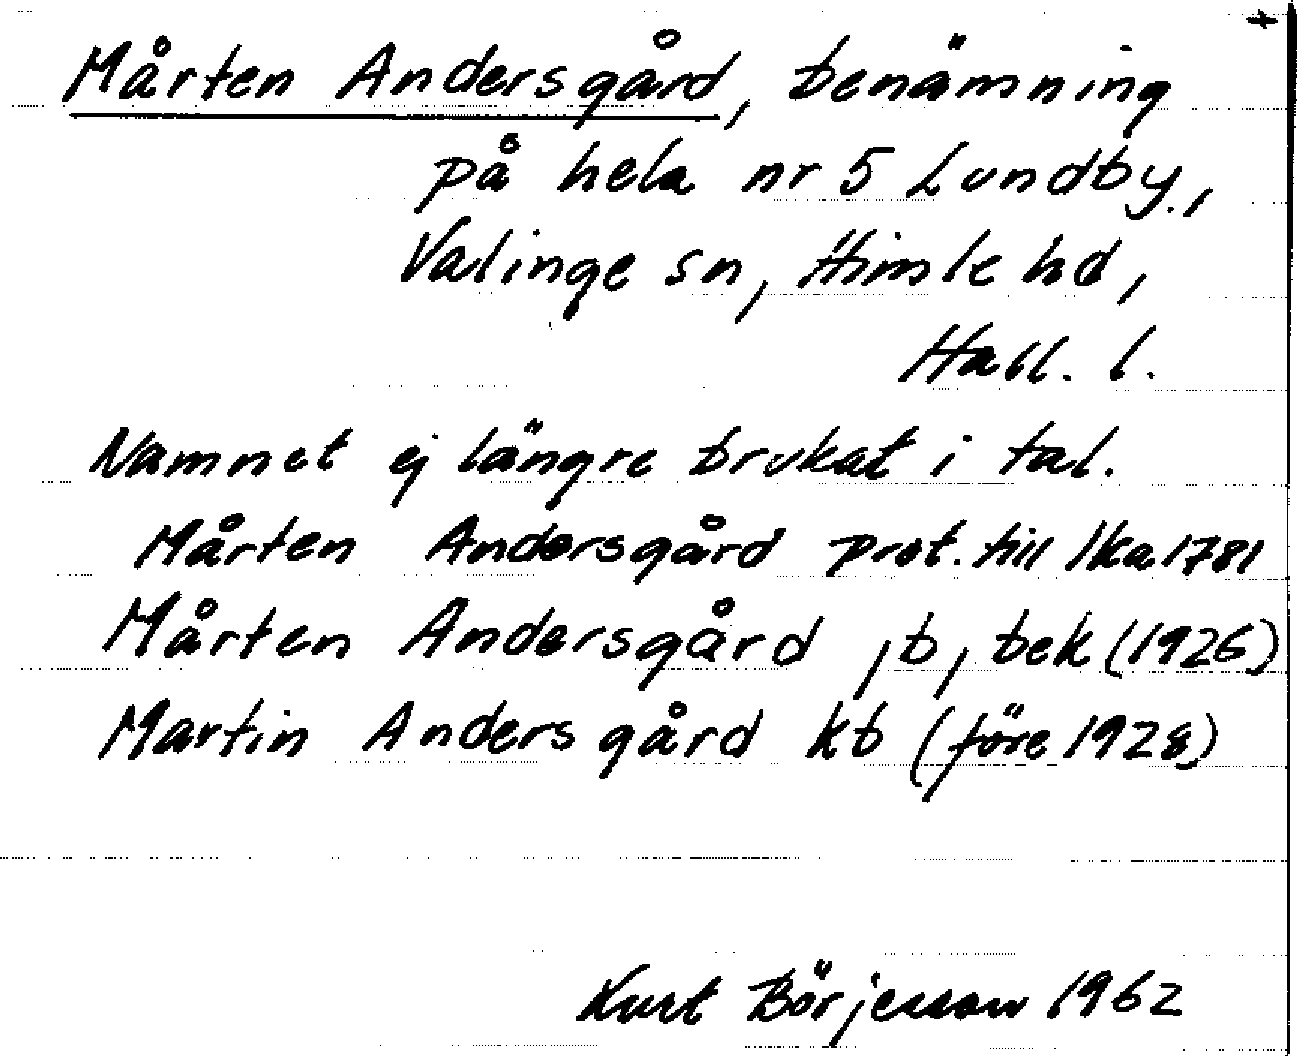 +
Mårten Andersgård, benämning
på hela nr 5 Lundby,
Valinge sn, Himle hd,
Hall. l.
Namnet ej längre brukat i tal.
Mårten Andersgård prot. till lka 1781
Mårten Andersgård, b, bek (1926)
Martin Andersgård kb (före 1928)
Kurt Börjesson 1962